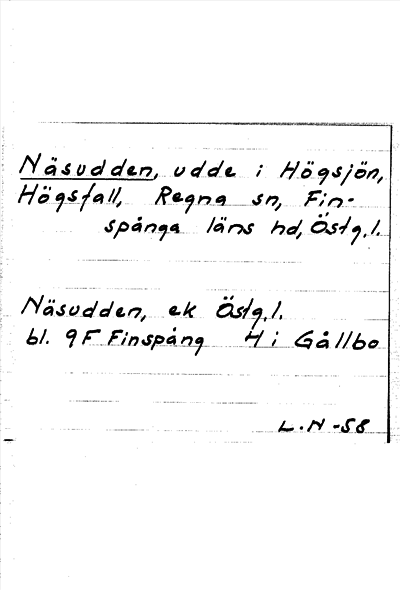 Näsudden, udde i Högsjön,
Högsfall, Regna sn, Fin-
spånga läns hd, Östg.l.
Näsudden, ek Östg.l.
bl. 9F Finspång H i Gållbo
L.N -58